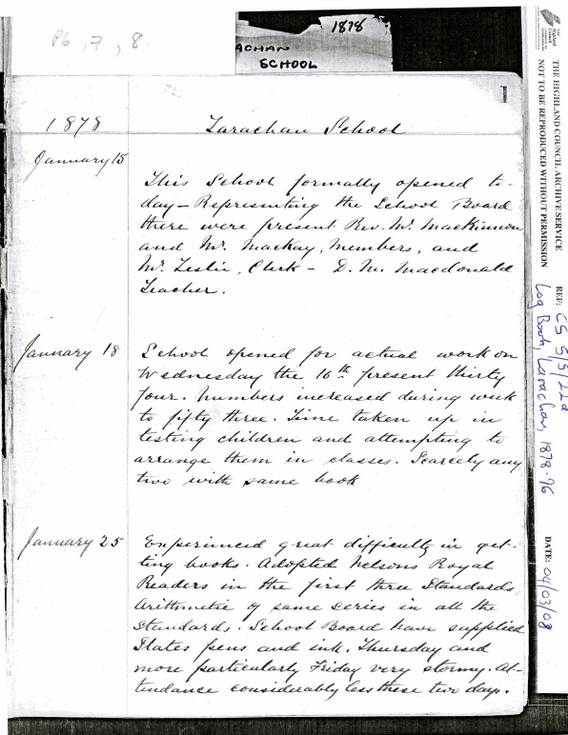 P6, 7, 8.
1878
ACHAN
SCHOOL
1
1878 Larachan School
January 15
This School formally opened to-
day - Representing the School Board
there were present Rev. Mr. MacKinnon
and Mr. Mackay, Members, and
Mr. Leslie, Clerk - D. M. Macdonald
Teacher.
January 18 School opened for actual work on
Wednesday the 16th present thirty
four. Numbers increased during week
to fifty three. Time taken up in
testing children and attempting to
arrange them in classes. Scarcely any
two with same book
January 25 Experienced great difficulty in get-
ting books. Adopted Nelsons Royal
Readers in the first three Standards,
Arithmetic of same series in all the
Standards. School Board have supplied
Slates pens and ink. Thursday and
more particularly Friday very stormy. At-
tendance considerably less these two days.
THE HIGHLAND COUNCIL ARCHIVE SERVICE
NOT TO BE REPRODUCED WITHOUT PERMISSION
REF: CS 5/5/22a
Log Book, Larachan, 1878-96
DATE: 04/03/08